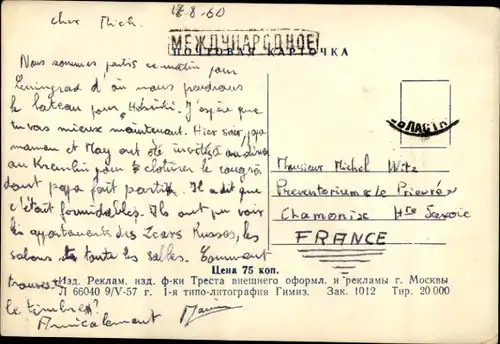 18-8-60
cher Mich.
МЕЖДУНАРОДНОЕ
ПОЧТОВАЯ КАРТОЧКА
Nous sommes partis ce matin pour
Leningrad d'où nous prendrons
le bateau pour Helsinki. J'espère que
tu vas mieux maintenant. Hier soir, papa
maman et May ont été invités au diner
au Kremlin pour clôturer le congrès
dont papa fait partie. Il a dit que
c'était formidable. Ils ont pu voir
les appartements des Tzars Russes, les
salons toutes les salles. Comment
trouves-tu
le timbre?
Amicalement
Monsieur Michel Witz
Preventorium Le Prieuré
Chamonix Hte Savoie
FRANCE
Цена 75 коп.
Изд. Реклам. изд. ф-ки Треста внешнего оформл. и рекламы г. Москвы
Л 66040 9/V-57 г. 1-я типо-литография Гимиз. Зак. 1012 Тир. 20 000